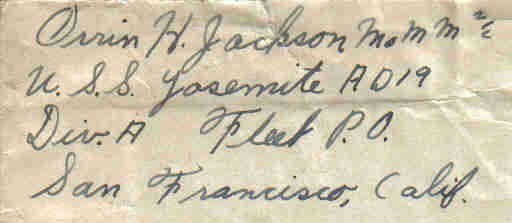 Orrin H. Jackson MoMM 2/c
U.S.S. Yosemite AD19
Div. A Fleet P.O.
San Francisco, Calif.